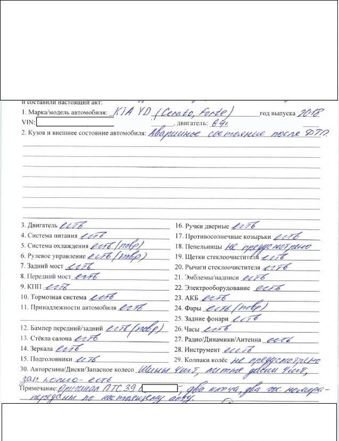 и составили настоящий акт:
1. Марка/модель автомобиля: KIA YD (Cerato, Forte) год выпуска 2018
VIN: , двигатель:
2. Кузов и внешнее состояние автомобиля: Аварийное состояние после ДТП
3. Двигатель есть
4. Система питания есть
5. Система охлаждения есть (повр)
6. Рулевое управление есть (повр)
7. Задний мост есть
8. Передний мост есть
9. КПП есть
10. Тормозная система есть
11. Принадлежности автомобиля есть
12. Бампер передний/задний есть (повр)
13. Стёкла салона есть
14. Зеркала есть
15. Подголовники есть
16. Ручки дверные есть
17. Противосолнечные козырьки есть
18. Пепельницы не предусмотрено
19. Щетки стеклоочистителя есть
20. Рычаги стеклоочистителя есть
21. Эмблемы/надписи есть
22. Электрооборудование есть
23. АКБ есть
24. Фары есть (повр)
25. Задние фонари есть
26. Часы есть
27. Радио/Динамики/Антенна есть
28. Инструмент есть
29. Колпаки колёс не предусмотрено
30. Авторезина/Диски/Запасное колесо Шины 4шт, литые диски 4шт,
зап. колесо - есть
Примечание: Оригинал ПТС 39 , два ключа, два
переданы по настоящему акту.